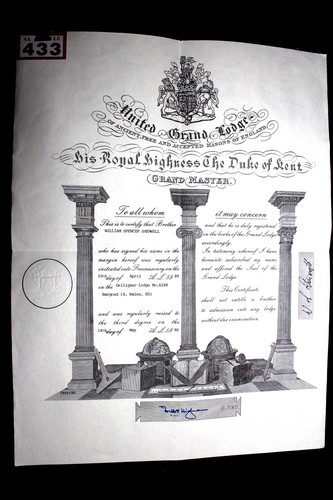 433
United Grand Lodge
OF ANCIENT FREE AND ACCEPTED MASONS OF ENGLAND
His Royal Highness The Duke of Kent
GRAND MASTER.
To all whom
This is to certify that Brother
WILLIAM SPENCER SHERWILL
who has signed his name in the
margin hereof was regularly
initiated into Freemasonry on the
day of April A.L.59
in the
Gelligaer Lodge No.6298
Bargoed (S. Wales, ED)
and was regularly raised to
the third degree on the
day of May A.L.59
it may concern
and that he is duly registered
in the books of the Grand Lodge
accordingly.
In testimony whereof I have
hereunto subscribed my name
and affixed the Seal of the
Grand Lodge.
This Certificate
shall not entitle a brother
to admission into any lodge
without due examination.